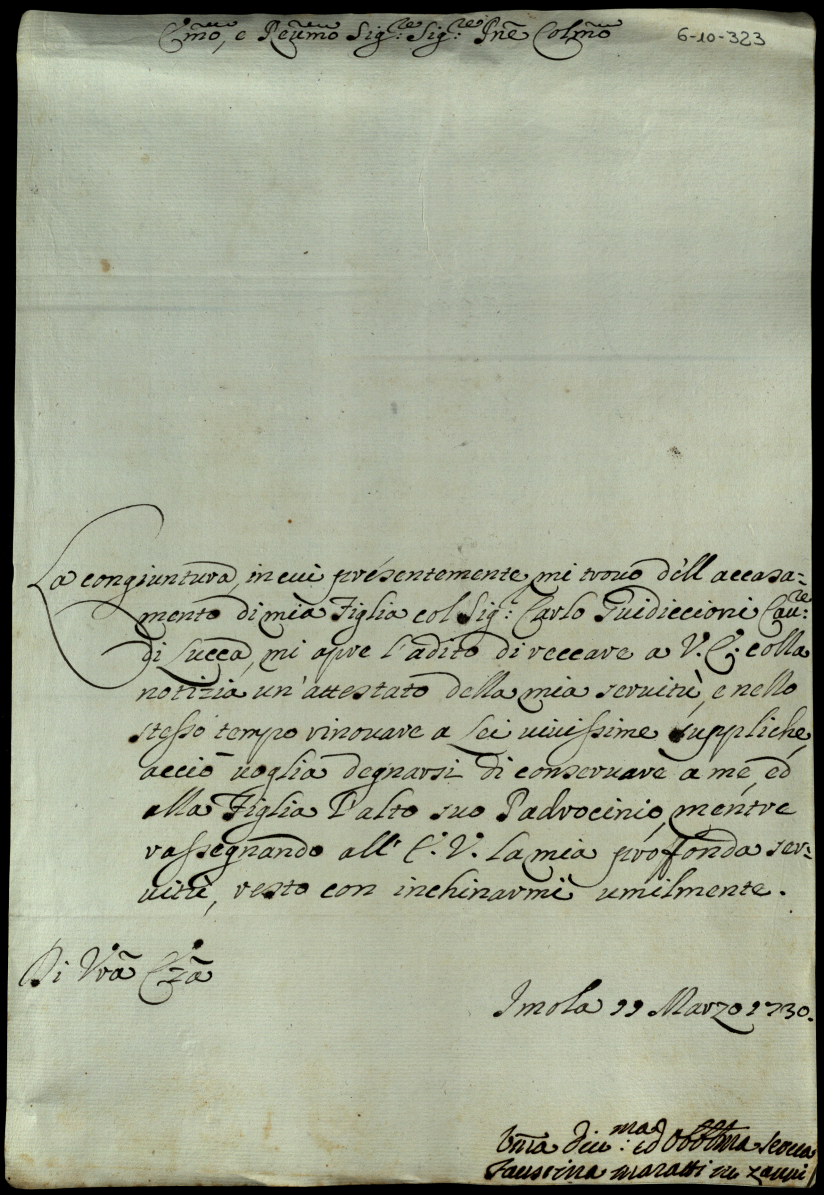 Emõ, e Reũmo Sig:re Sig:re Prñe Colmõ
6-10-323
La congiuntura, in cui presentemente mi trovo dell'accasa=
mento di mia Figlia col Sig: Carlo Guidiccioni Cau:re
di Lucca, mi apre l'adito di reccare a V. E: colla
notizia un'attestato della mia servitù, e nello
stesso tempo rinovare a Lei vivissime suppliche,
acciò voglia degnarsi di conservare a me, ed
alla Figlia l'alto suo Padrocinio, mentre
rassegnando all'E. V. la mia proffonda ser=
vitù, resto con inchinarmi umilmente.
Di Vrã Ezã
Imola 11 Marzo 1730.
Umã Diu:ma ed Obblma Serva
Faustina Maratti Zappi